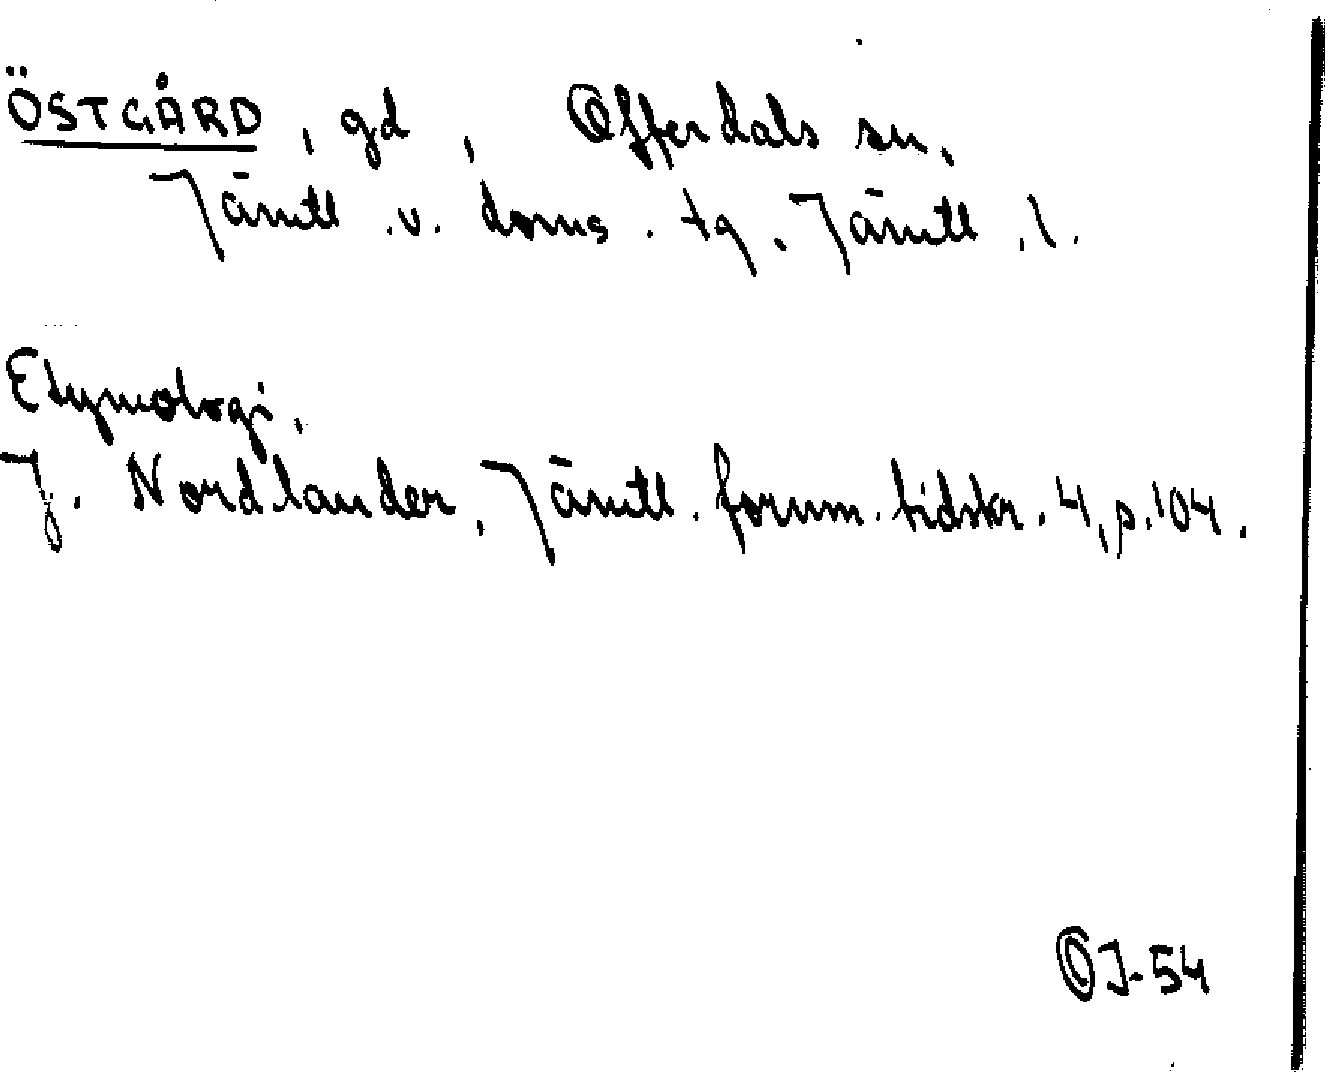 ÖSTGÅRD, gd, Offerdals sn,
Jämtl. v. doms. tg. Jämtl. l.
Etymologi.
J. Nordlander, Jämtl. fornm. tidskr. 4, p. 104.
OJ-54